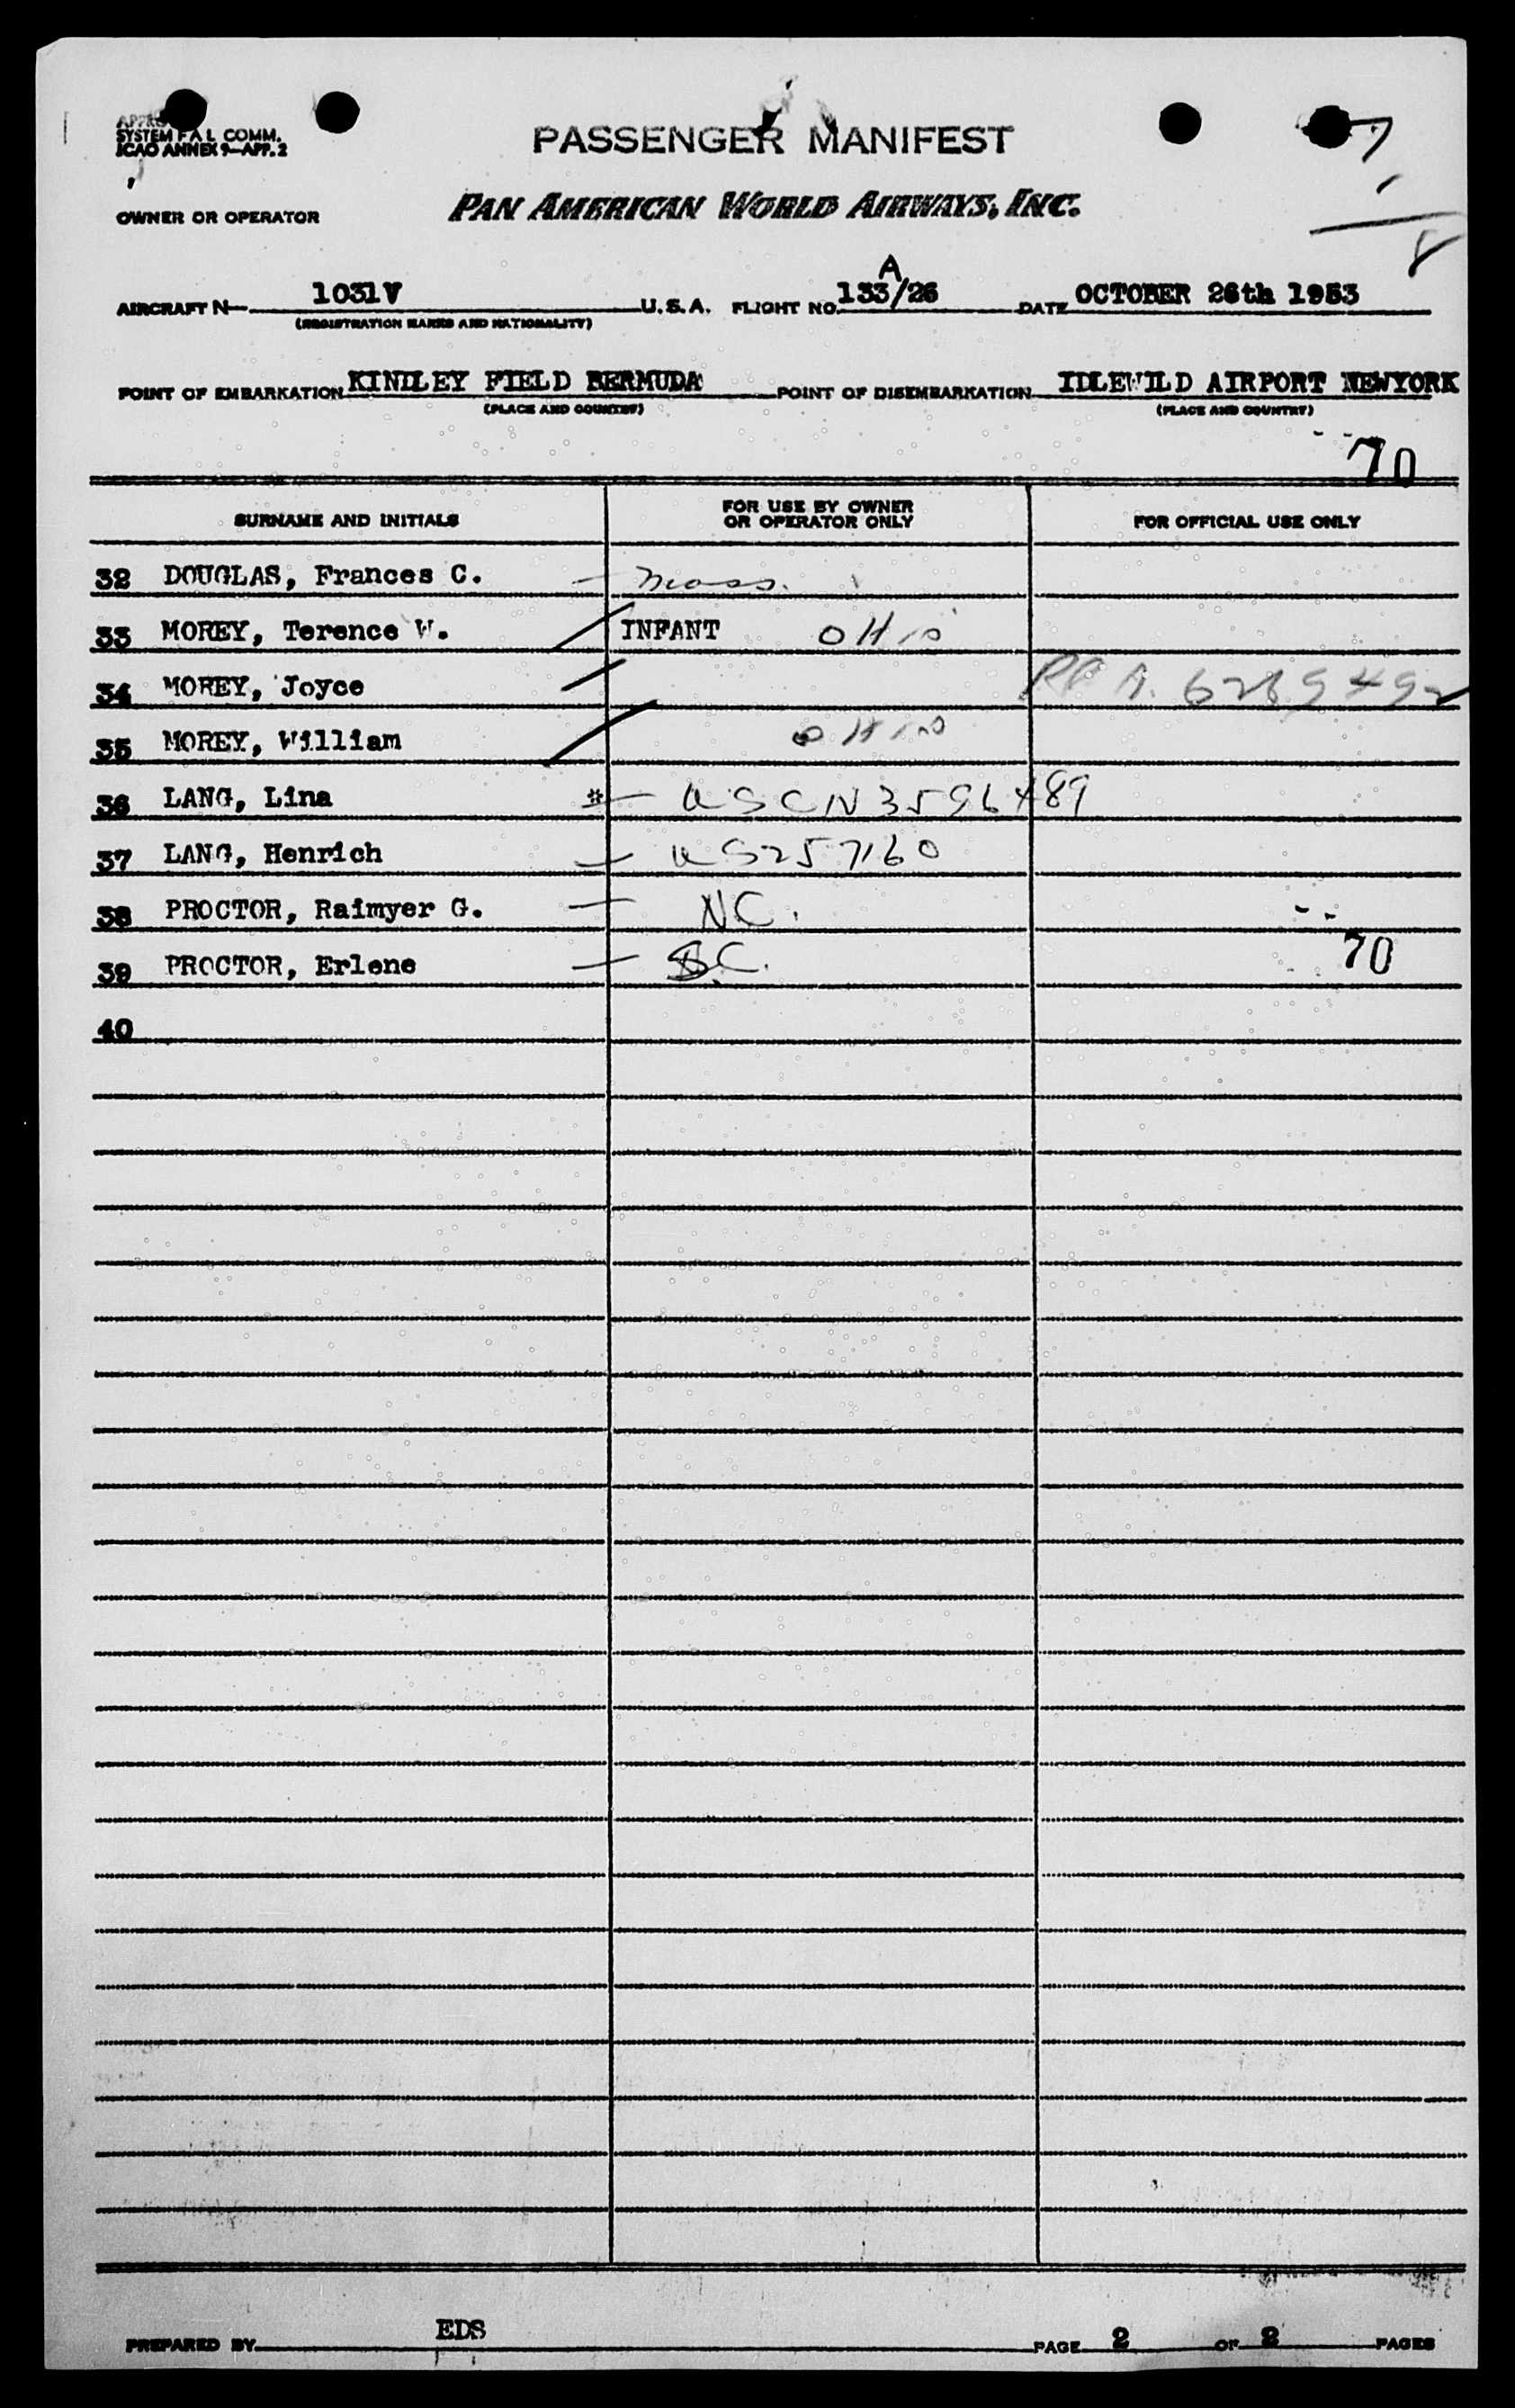 PASSENGER MANIFEST
SYSTEM F A L COMM.
ICAO ANNEX 9—APP. 2
OWNER OR OPERATOR PAN AMERICAN WORLD AIRWAYS, INC.
A
AIRCRAFT N— 1031V U.S.A. FLIGHT NO. 133/26 DATE OCTOBER 26th 1953
(REGISTRATION MARKS AND NATIONALITY)
POINT OF EMBARKATION KINDLEY FIELD BERMUDA POINT OF DISEMBARKATION IDLEWILD AIRPORT NEWYORK
(PLACE AND COUNTRY) (PLACE AND COUNTRY)
70
SURNAME AND INITIALS FOR USE BY OWNER OR OPERATOR ONLY FOR OFFICIAL USE ONLY
32 DOUGLAS, Frances C. — Mass.
33 MOREY, Terence W. INFANT OHIO
34 MOREY, Joyce A. 6289492
35 MOREY, William OHIO
36 LANG, Lina * — USCN 3596489
37 LANG, Henrich — US257160
38 PROCTOR, Raimyer G. — NC.
39 PROCTOR, Erlene — S.C. 70
40
PREPARED BY EDS PAGE 2 OF 2 PAGES